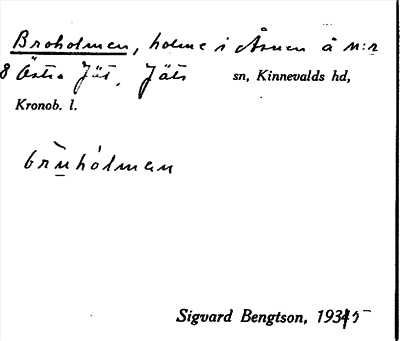 Broholmen, holme i Åsnen å n:r
8 Östra Jät, Jäts sn, Kinnevalds hd,
Kronob. l.
brùhólmɐn
Sigvard Bengtson, 1935